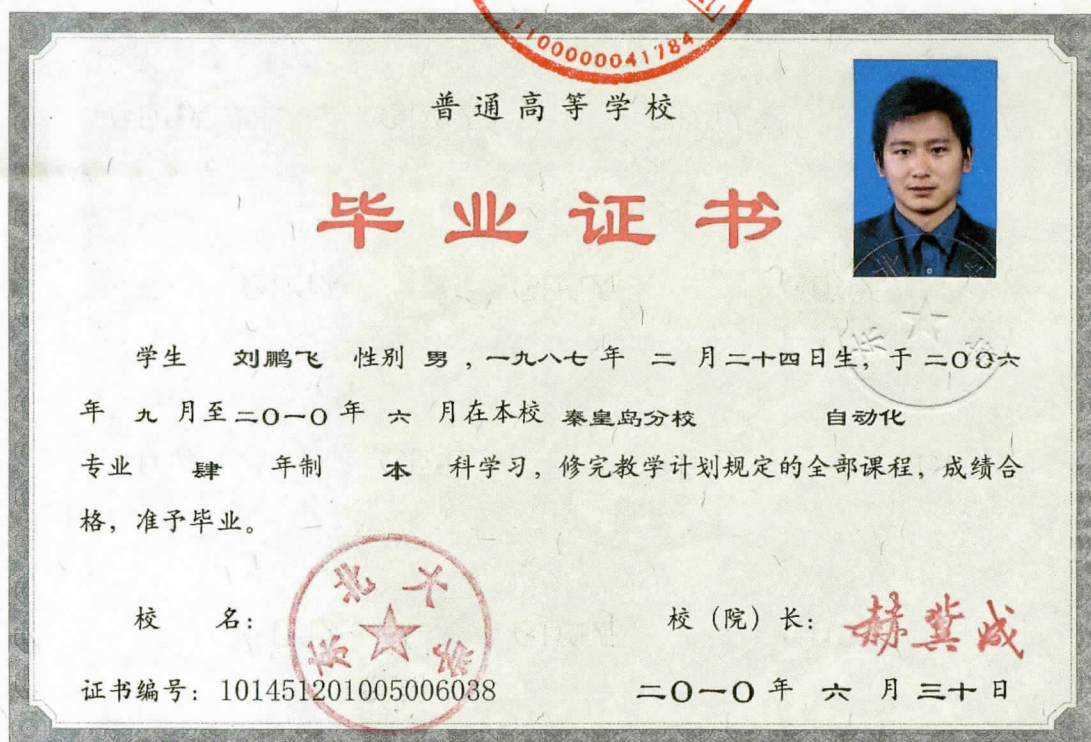 1100000041784
普通高等学校
毕业证书
学生 刘鹏飞 性别 男，一九八七年 二 月二十四日生，于 二〇〇六
年 九 月至二〇一〇年 六 月在本校 秦皇岛分校 自动化
专业 肆 年制 本 科学习，修完教学计划规定的全部课程，成绩合
格，准予毕业。
东北大学
校 名：
校（院）长：赫冀成
证书编号：101451201005006038
二〇一〇年 六 月 三十 日